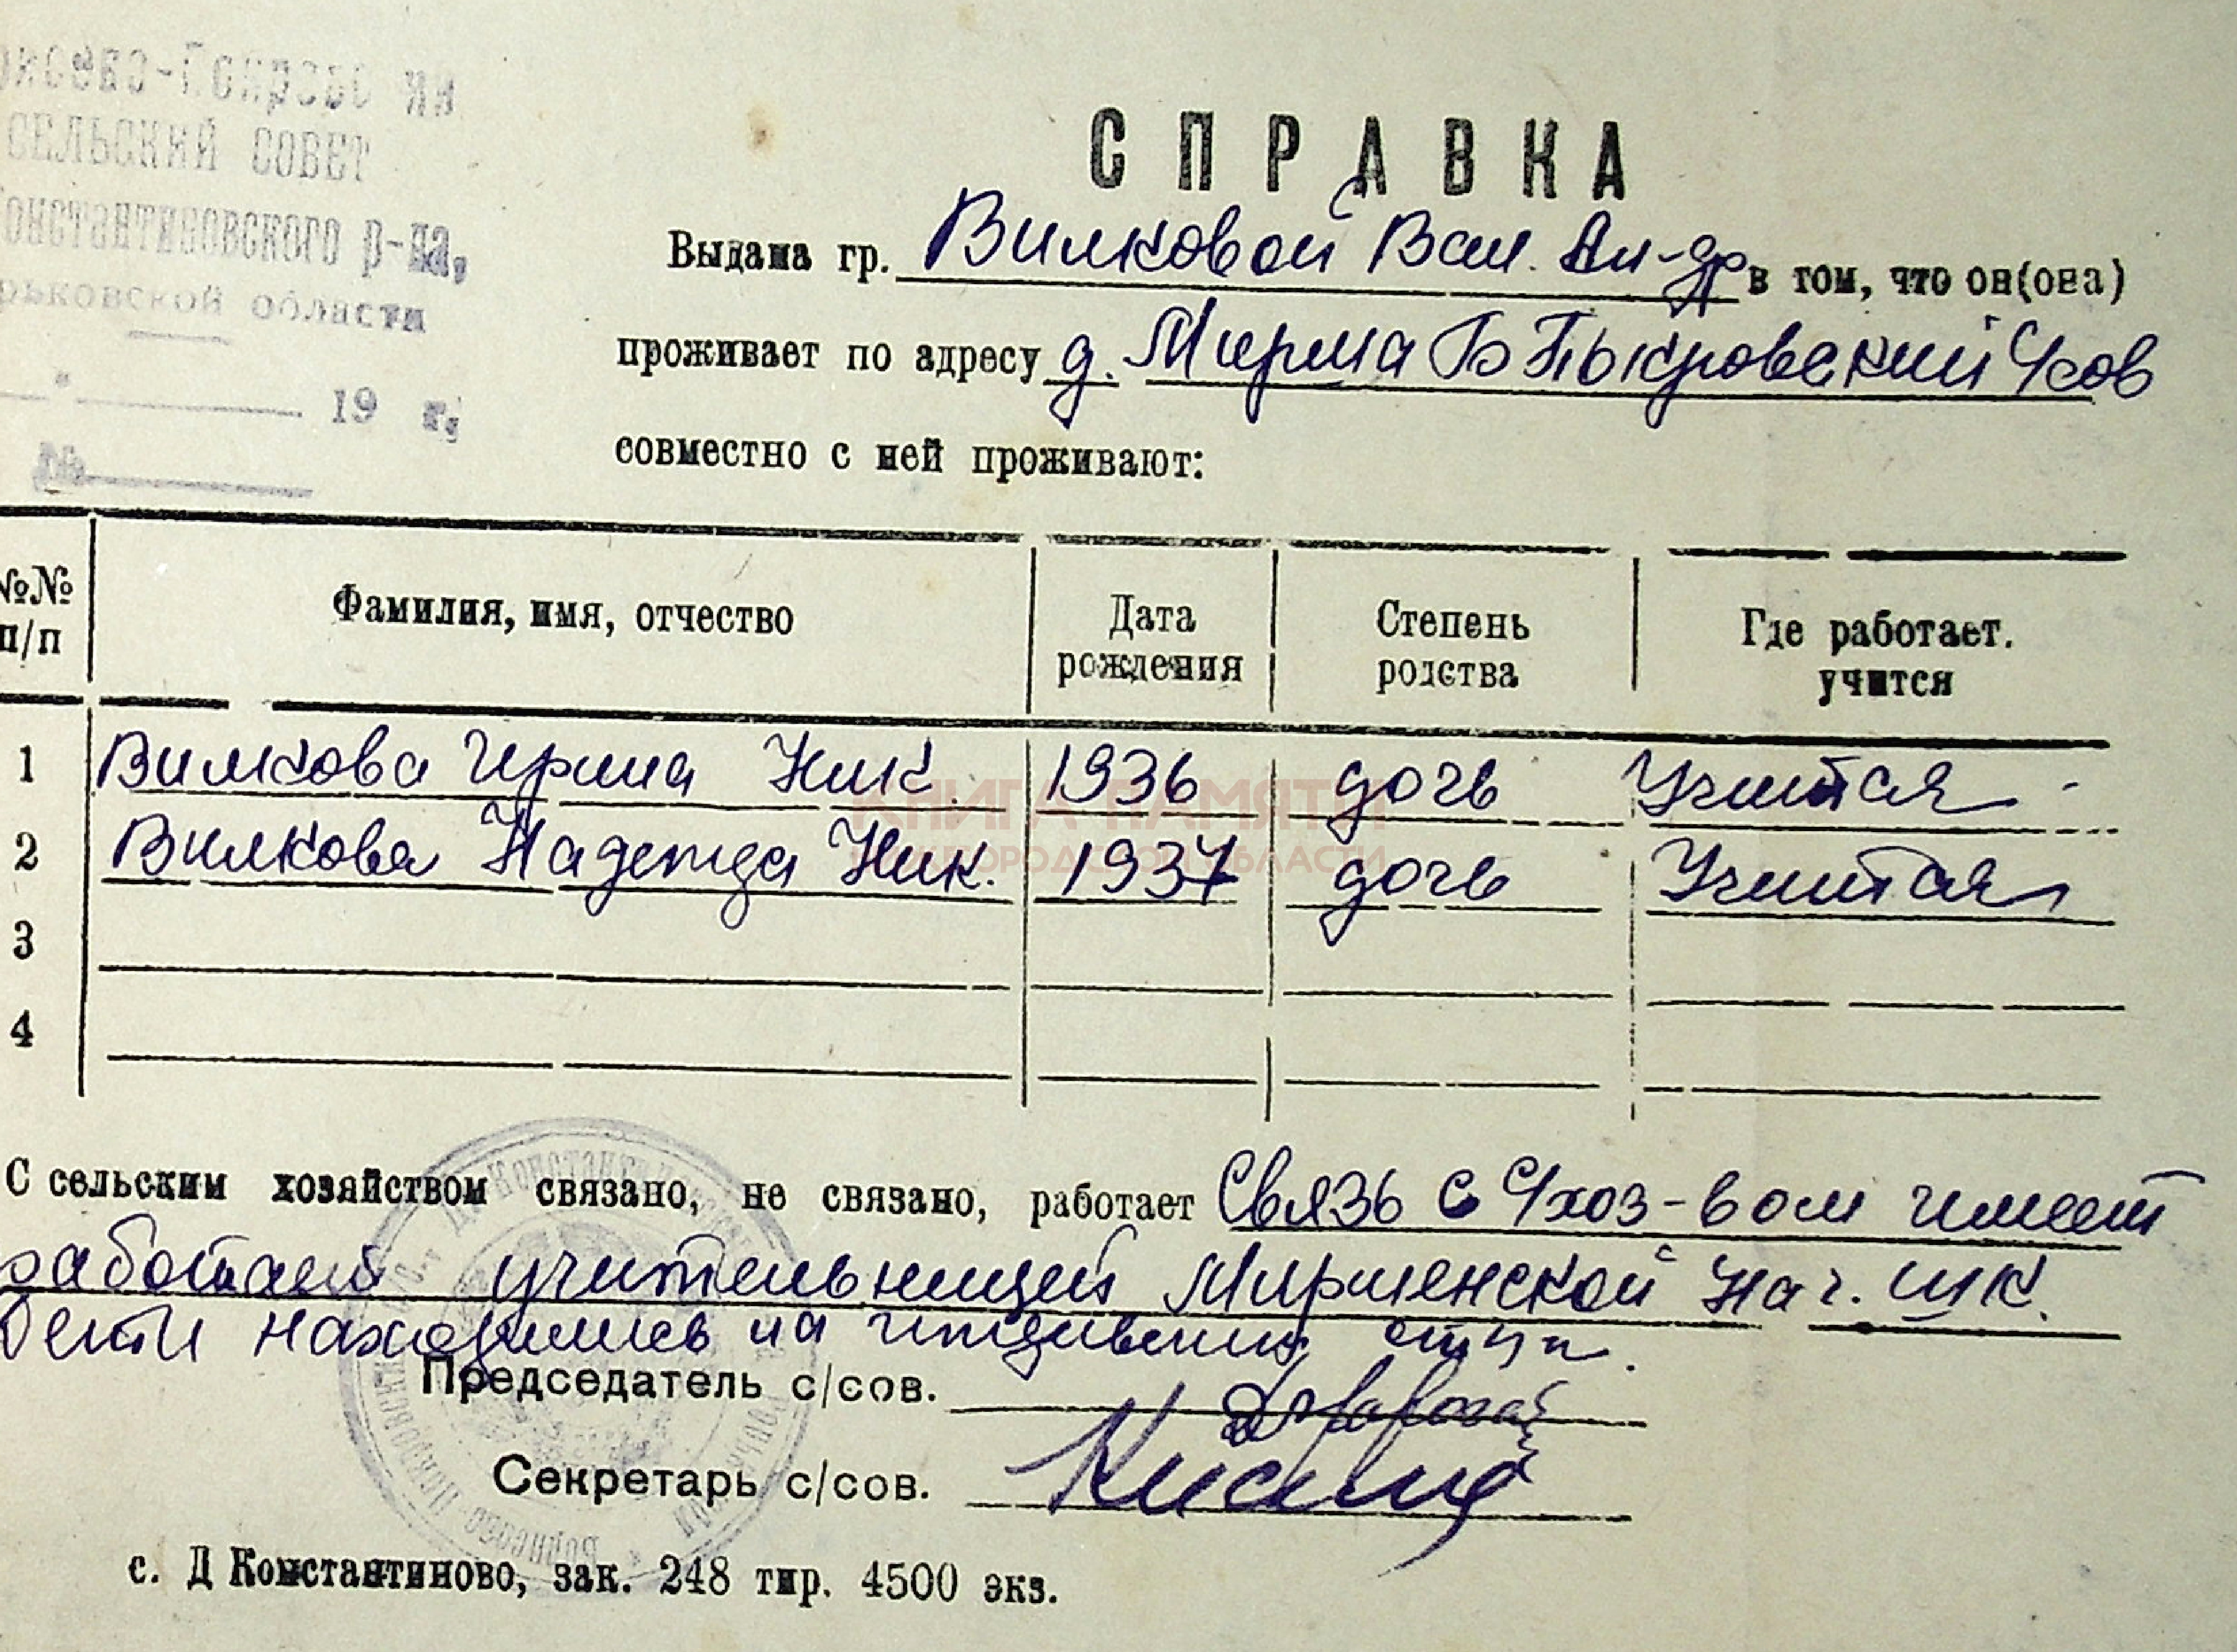 СЕЛЬСКИЙ СОВЕТ
Константиновского р-на,
рьковской области
" 19 г.
№
СПРАВКА
Выдана гр. Вилковой Вал. Ал-др в том, что он(она)
проживает по адресу д. Мирма Б Пыкровский Ссов
совместно с ней проживают:
№№ п/п Фамилия, имя, отчество Дата рождения Степень родства Где работает. учится
1 Вилкова Ирина Ник. 1936 дочь Учится
2 Вилкова Надежда Ник. 1937 дочь Учится
3
4
С сельским хозяйством связано, не связано, работает Связь с С/хоз-вом имеет
работает учительницей Мирменской Нач. шк.
Дети находились на иждивении отца.
Председатель с/сов.
Секретарь с/сов.
с. Д Константиново, зак. 248 тир. 4500 экз.
КНИГА ПАМЯТИ
НИЖЕГОРОДСКОЙ ОБЛАСТИ